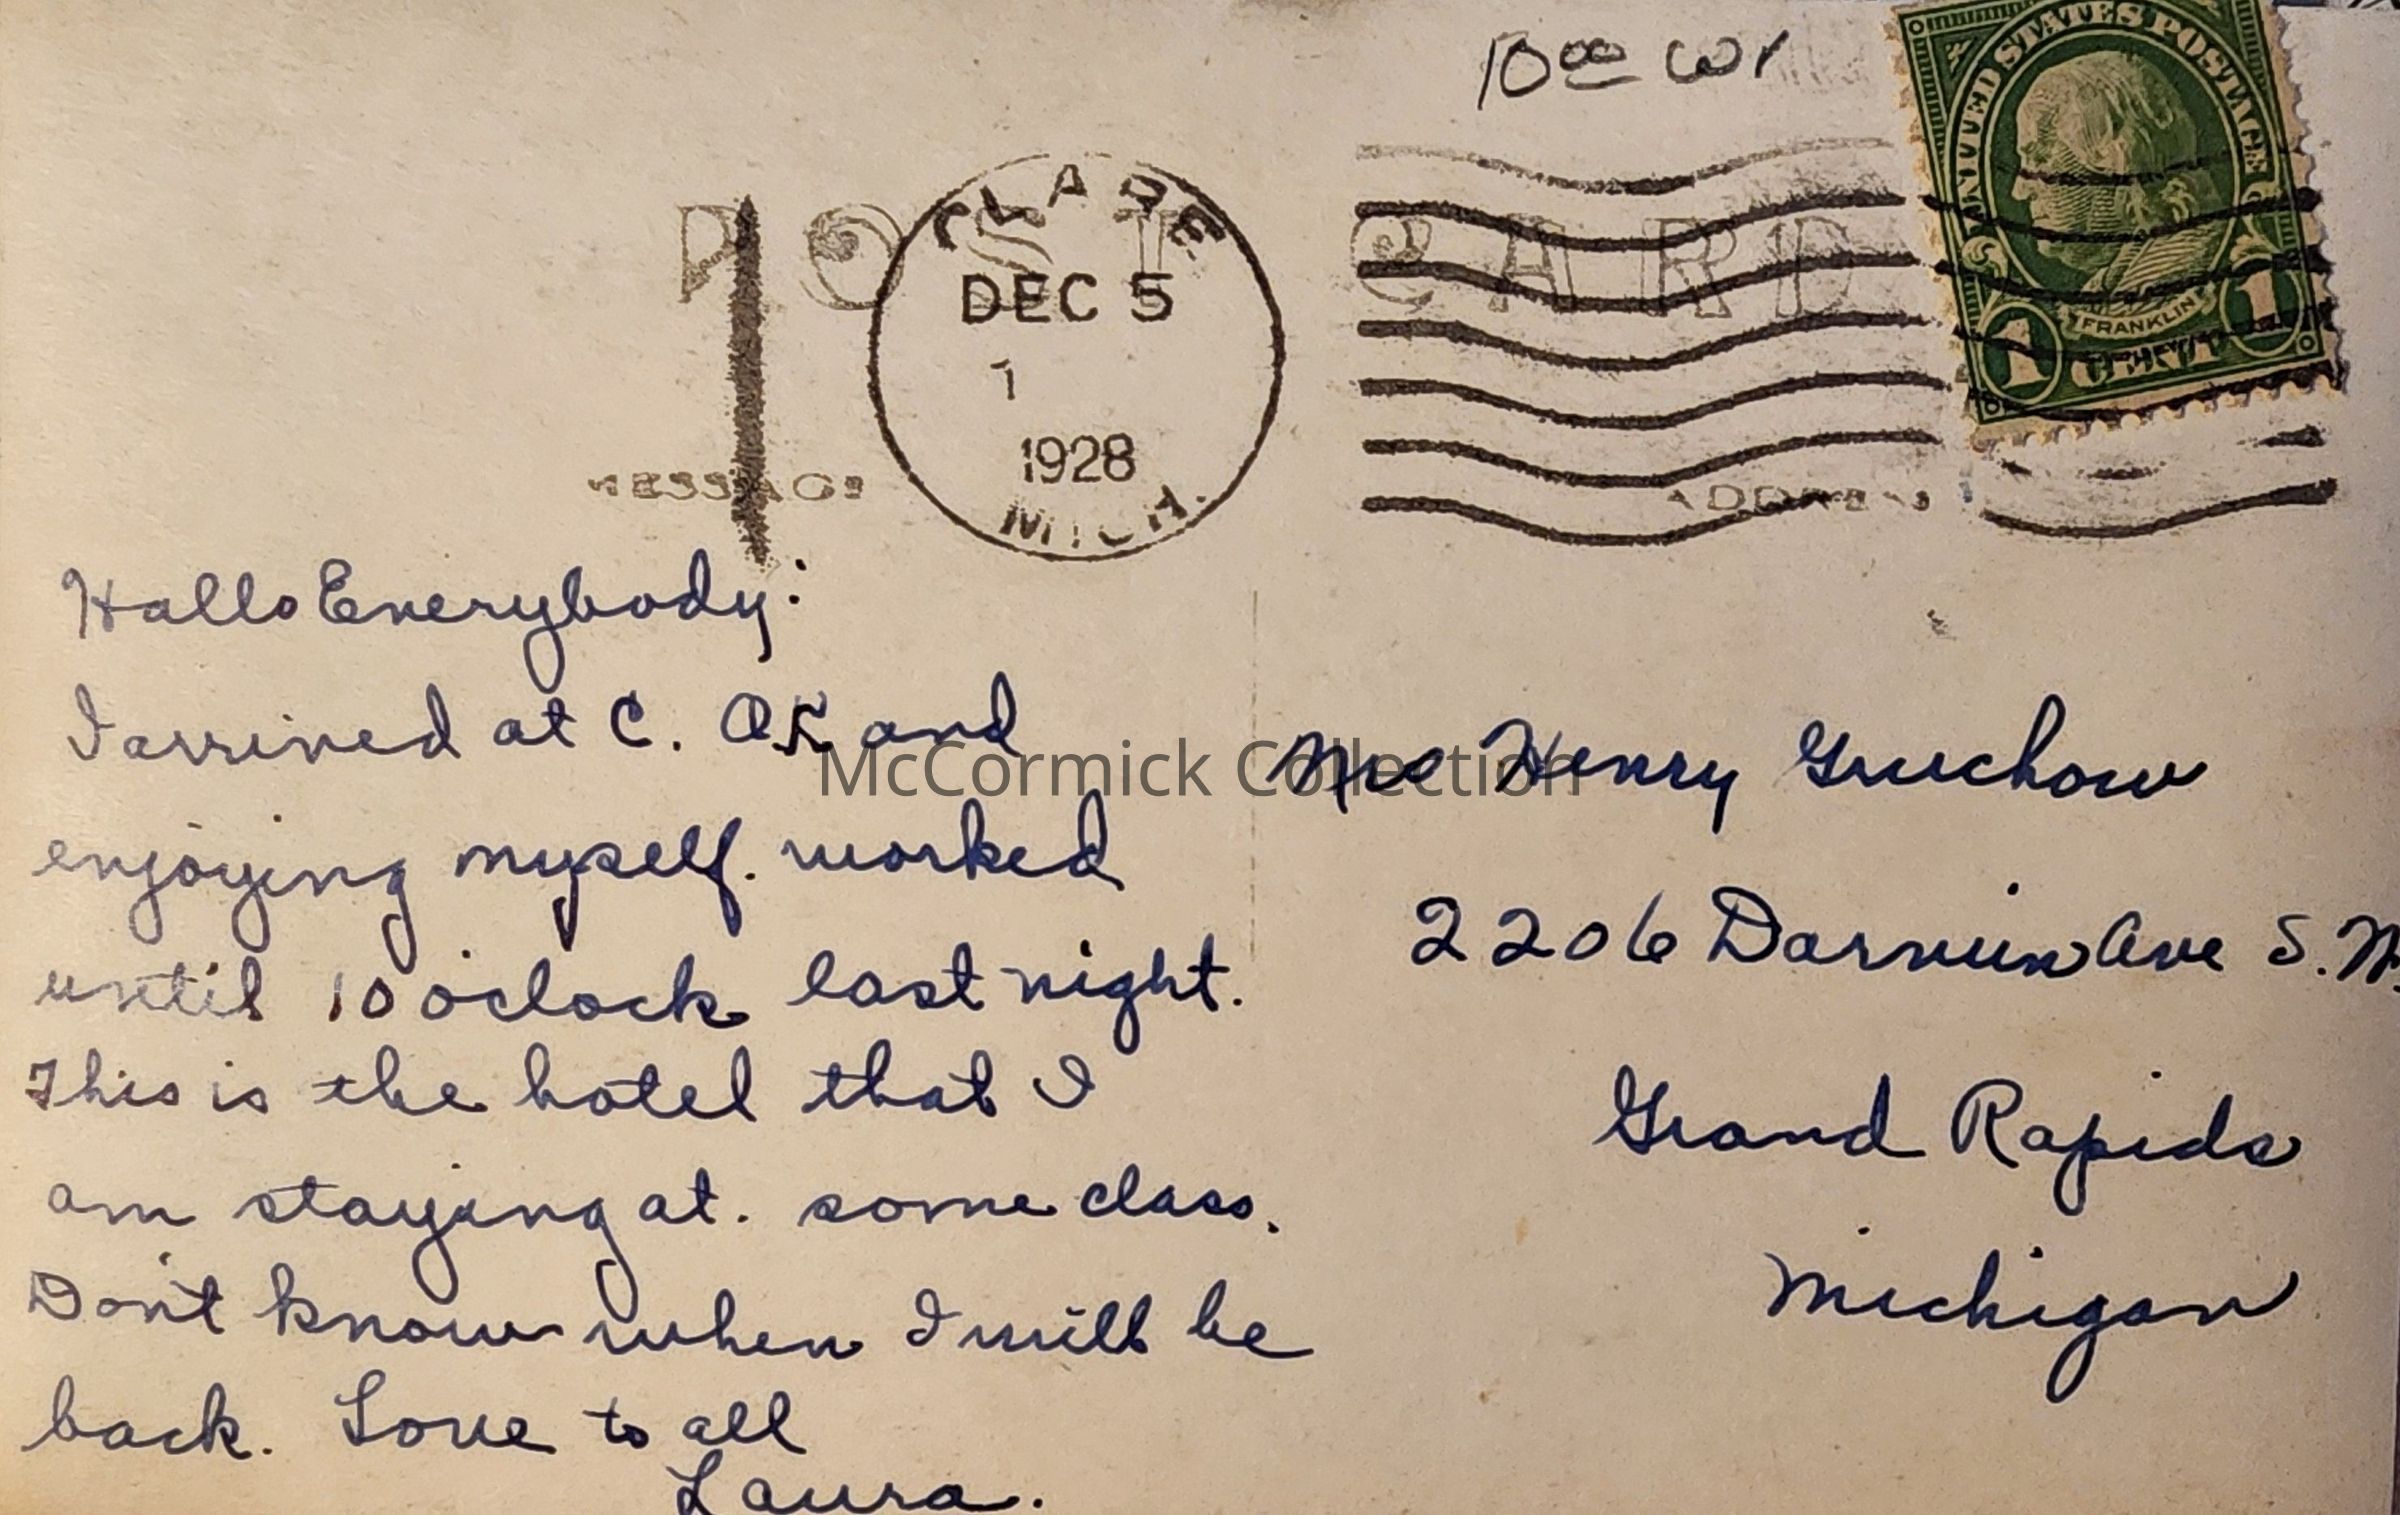 10⁰⁰ WI
UNITED STATES POSTAGE
FRANKLIN
1 CENT 1
POST CARD
CLARE
DEC 5
1
1928
MICH.
MESSAGE
ADDRESS
Hallo Everybody:
I arrived at C. OK and
enjoying myself. worked
until 10 o'clock last night.
This is the hotel that I
am staying at. some class.
Don't know when I will be
back. Love to all
Laura.
Henry Gruchow
2206 Darwin Ave S.W.
Grand Rapids
Michigan
McCormick Collection